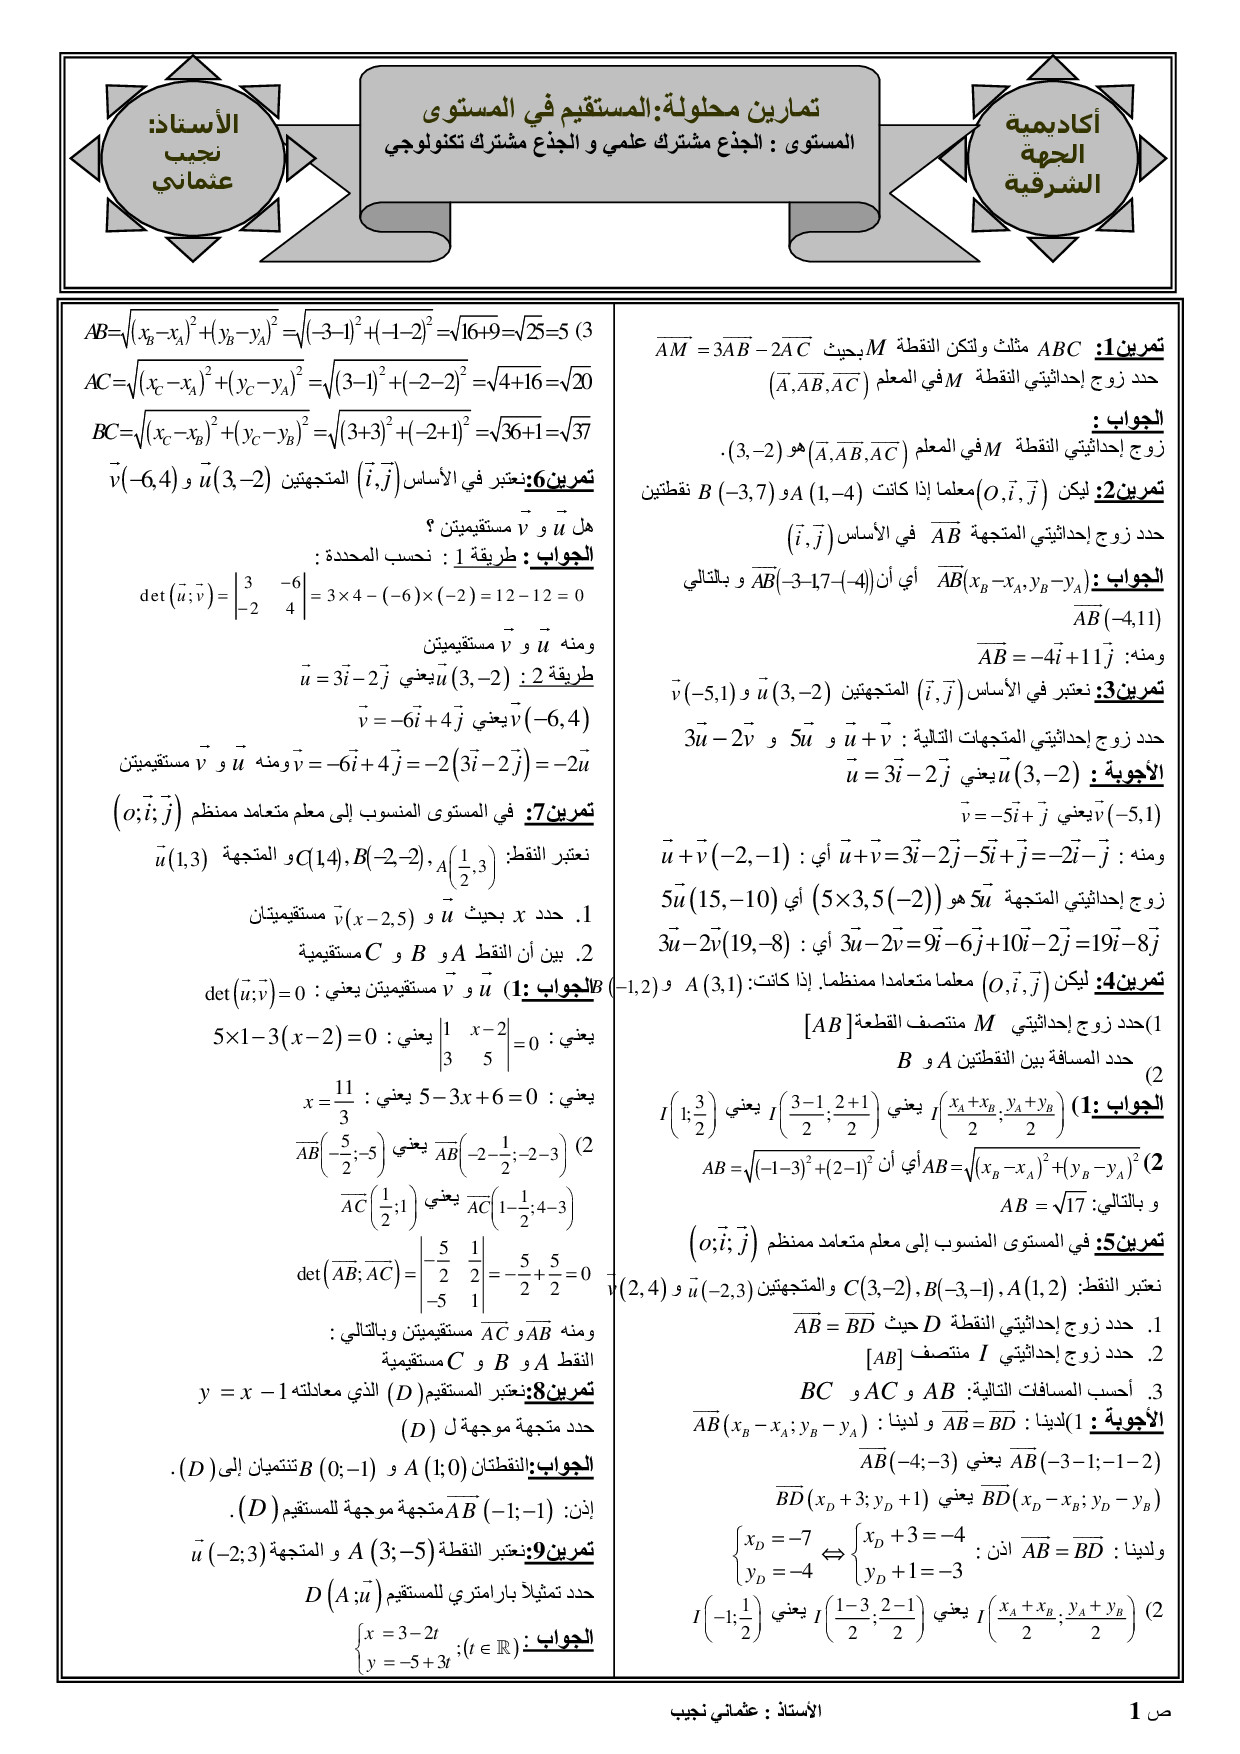 أكاديمية
الجهة
الشرقية
تمارين محلولة:المستقيم في المستوى
المستوى : الجذع مشترك علمي و الجذع مشترك تكنولوجي
الأستاذ:
نجيب
عثماني
تمرين1: ABC مثلث ولتكن النقطة M بحيث AM = 3AB − 2AC
حدد زوج إحداثيتي النقطة M في المعلم (A, AB, AC)
الجواب :
زوج إحداثيتي النقطة M في المعلم (A, AB, AC) هو (3, −2) .
تمرين2: ليكن (O, i, j) معلما إذا كانت A(1, −4) و B(−3, 7) نقطتين
حدد زوج إحداثيتي المتجهة AB في الأساس (i, j)
الجواب : AB(x_B − x_A, y_B − y_A) أي أن AB(−3−1,7−(−4)) و بالتالي
AB(−4,11)
ومنه: AB = −4i + 11j
تمرين3: نعتبر في الأساس (i, j) المتجهتين u(3, −2) و v(−5,1)
حدد زوج إحداثيتي المتجهات التالية : u + v و 5u و 3u − 2v
الأجوبة : u(3, −2) يعني u = 3i − 2j
v(−5,1) يعني v = −5i + j
ومنه : u + v = 3i − 2j − 5i + j = −2i − j أي : u + v(−2, −1)
زوج إحداثيتي المتجهة 5u هو (5×3, 5(−2)) أي 5u(15, −10)
3u − 2v = 9i − 6j + 10i − 2j = 19i − 8j أي : 3u − 2v(19, −8)
تمرين4: ليكن (O, i, j) معلما متعامدا ممنظما. إذا كانت: A(3,1) و B(−1,2)
1)حدد زوج إحداثيتي M منتصف القطعة [AB]
2) حدد المسافة بين النقطتين A و B
الجواب :1) I((x_A + x_B)/2 ; (y_A + y_B)/2) يعني I((3−1)/2 ; (2+1)/2) يعني I(1; 3/2)
2) AB = √((x_B − x_A)² + (y_B − y_A)²) أي أن AB = √((−1−3)² + (2−1)²)
و بالتالي: AB = √17
تمرين5: في المستوى المنسوب إلى معلم متعامد ممنظم (o; i; j)
نعتبر النقط: A(1, 2) , B(−3, −1) , C(3, −2) والمتجهتين u(−2,3) و v(2, 4)
1. حدد زوج إحداثيتي النقطة D حيث AB = BD
2. حدد زوج إحداثيتي I منتصف [AB]
3. أحسب المسافات التالية: AB و AC و BC
الأجوبة : 1)لدينا : AB = BD و لدينا : AB(x_B − x_A; y_B − y_A)
AB(−3−1; −1−2) يعني AB(−4; −3)
BD(x_D − x_B; y_D − y_B) يعني BD(x_D + 3; y_D + 1)
ولدينا : AB = BD اذن : {x_D + 3 = −4 ; y_D + 1 = −3 ⇔ {x_D = −7 ; y_D = −4
2) I((x_A + x_B)/2 ; (y_A + y_B)/2) يعني I((1−3)/2 ; (2−1)/2) يعني I(−1; 1/2)
3) AB = √((x_B − x_A)² + (y_B − y_A)²) = √((−3−1)² + (−1−2)²) = √16+9 = √25 = 5
AC = √((x_C − x_A)² + (y_C − y_A)²) = √((3−1)² + (−2−2)²) = √4+16 = √20
BC = √((x_C − x_B)² + (y_C − y_B)²) = √((3+3)² + (−2+1)²) = √36+1 = √37
تمرين6:نعتبر في الأساس (i, j) المتجهتين u(3, −2) و v(−6, 4)
هل u و v مستقيميتن ؟
الجواب : طريقة 1 : نحسب المحددة :
det(u; v) = |3 −6 ; −2 4| = 3×4 − (−6)×(−2) = 12 − 12 = 0
ومنه u و v مستقيميتن
طريقة 2 : u(3, −2) يعني u = 3i − 2j
v(−6, 4) يعني v = −6i + 4j
v = −6i + 4j = −2(3i − 2j) = −2u ومنه u و v مستقيميتن
تمرين7: في المستوى المنسوب إلى معلم متعامد ممنظم (o; i; j)
نعتبر النقط: A(1/2, 3) , B(−2, −2) , C(1,4) و المتجهة u(1,3)
1. حدد x بحيث u و v(x − 2,5) مستقيميتان
2. بين أن النقط A و B و C مستقيمية
الجواب :1) u و v مستقيميتن يعني : det(u; v) = 0
يعني : |1 x−2 ; 3 5| = 0 يعني : 5×1 − 3(x − 2) = 0
يعني : 5 − 3x + 6 = 0 يعني : x = 11/3
2) AB(−2 − 1/2; −2−3) يعني AB(−5/2; −5)
AC(1 − 1/2; 4−3) يعني AC(1/2; 1)
det(AB; AC) = |−5/2 1/2 ; −5 1| = −5/2 + 5/2 = 0
ومنه AB و AC مستقيميتن وبالتالي :
النقط A و B و C مستقيمية
تمرين8:نعتبر المستقيم (D) الذي معادلته y = x − 1
حدد متجهة موجهة ل (D)
الجواب:النقطتان A(1;0) و B(0;−1) تنتميان إلى (D) .
إذن: AB(−1; −1) متجهة موجهة للمستقيم (D) .
تمرين9:نعتبر النقطة A(3; −5) و المتجهة u(−2;3)
حدد تمثيلآ بارامتري للمستقيم D(A; u)
الجواب : {x = 3 − 2t ; y = −5 + 3t ; (t ∈ ℝ)
ص 1
الأستاذ : عثماني نجيب